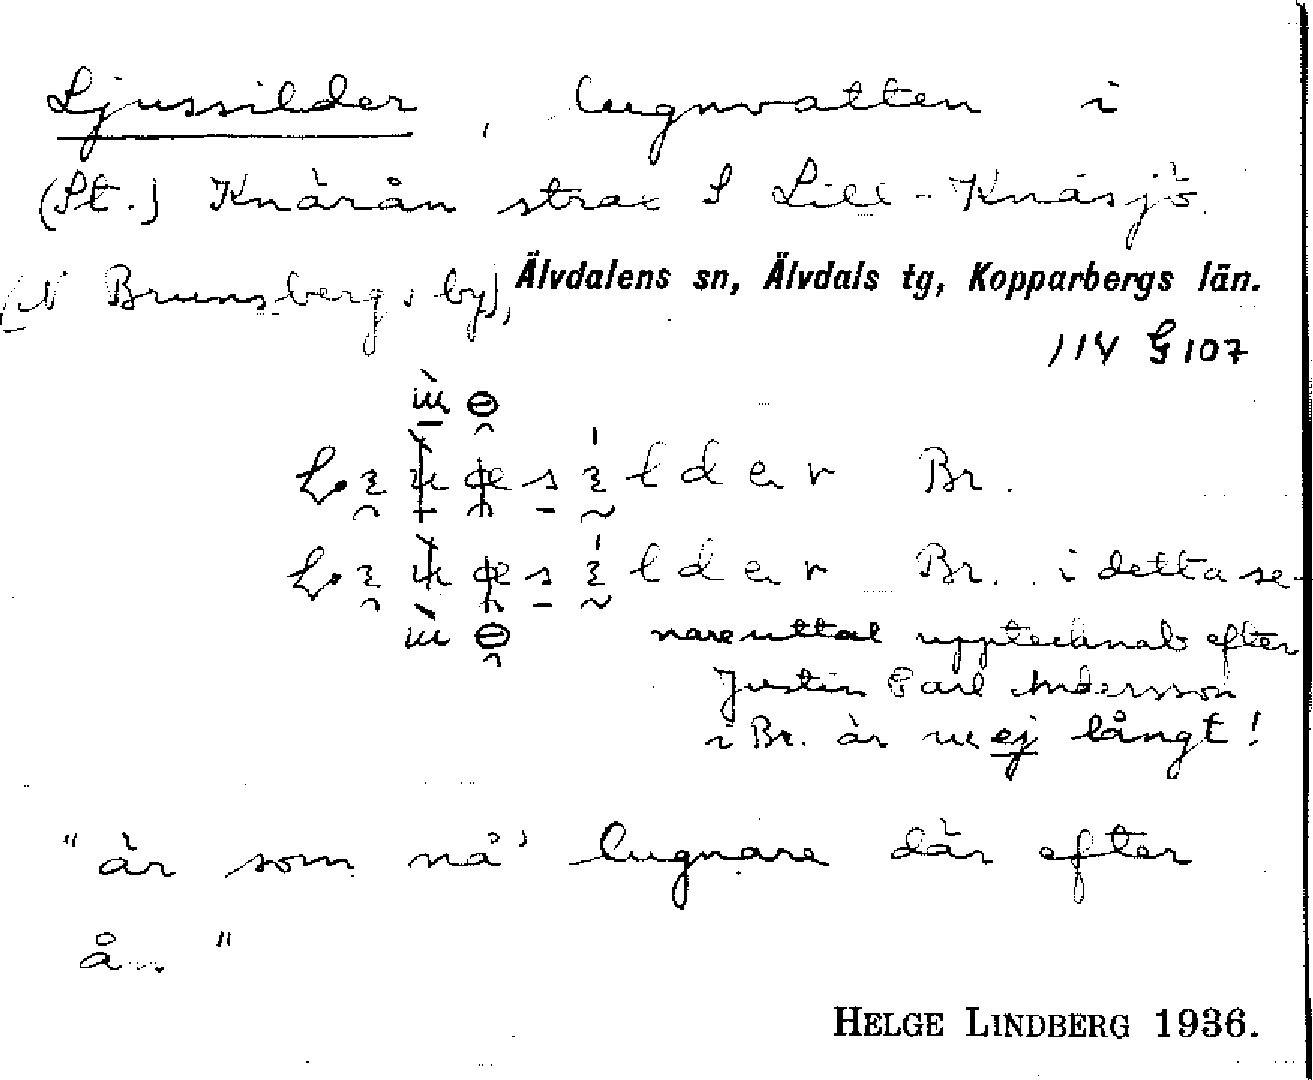 Ljussilder, lugnvatten i
(St.) Knärån strax S Lill-Knäsjö.
(N Brunsbergs by), Älvdalens sn, Älvdals tg, Kopparbergs län.
114 G 107
Br.
Br. i detta se-
nare uttal upptecknat efter
Justin Carl Andersson
i Br. är ej långt!
"är som nå' lugnare där efter
ån"
HELGE LINDBERG 1936.